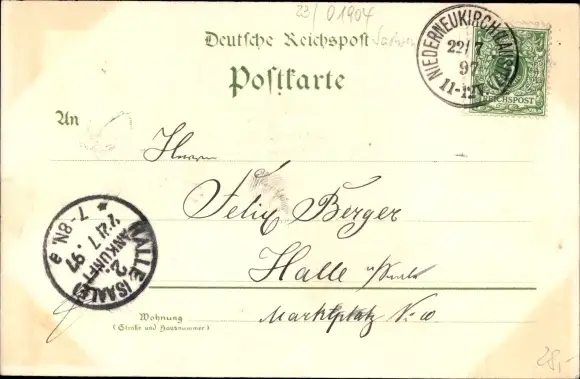 23/ 01904
Deutsche Reichspost
Sachsen
Postkarte
NIEDERNEUKIRCH
22/7
97
11-12V.
REICHSPOST
An
Herrn
Felix Berger
Halle a/Saale
Marktplatz No
HALLE (SAALE)
ANKUNFT
2.
22/7.97
7-8N.
a
Wohnung
(Straße und Hausnummer)
28,-